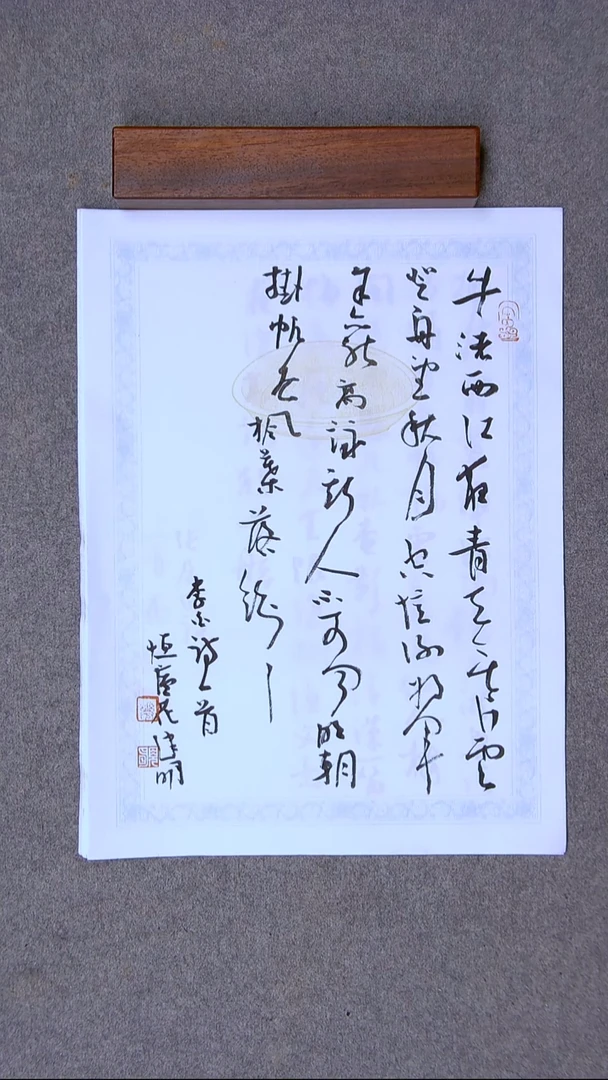 牛渚西江夜青天無片雲
登舟望秋月空憶謝將軍
余亦能高詠斯人不可聞明朝
掛帆去楓葉落紛紛
李白詩一首
恒廬
明